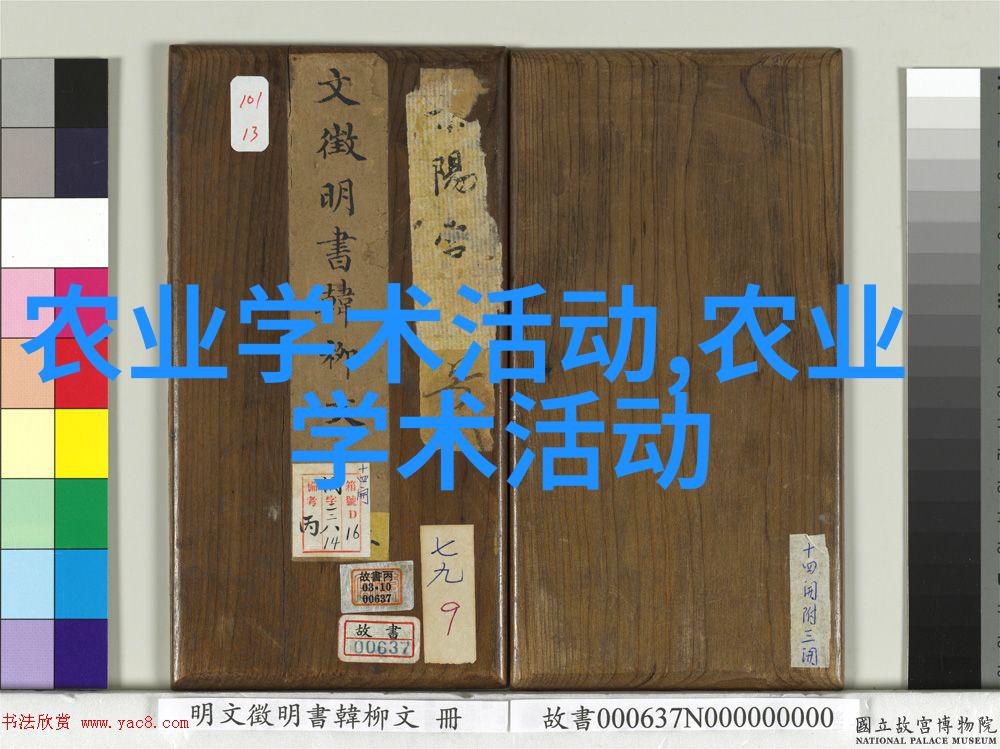 101
13
文徵明書韓柳文
陽宮
農业学术活动,农业
学术活动
十四開
箱號D
16
字三
八
14
備考
丙
故書丙
03·10
00637
故書
00637
七九
9
十四開附三開
书法欣赏 www.yac8.com
明文徵明書韓柳文 冊
故書000637N000000000
國立故宮博物院
NATIONAL PALACE MUSEUM